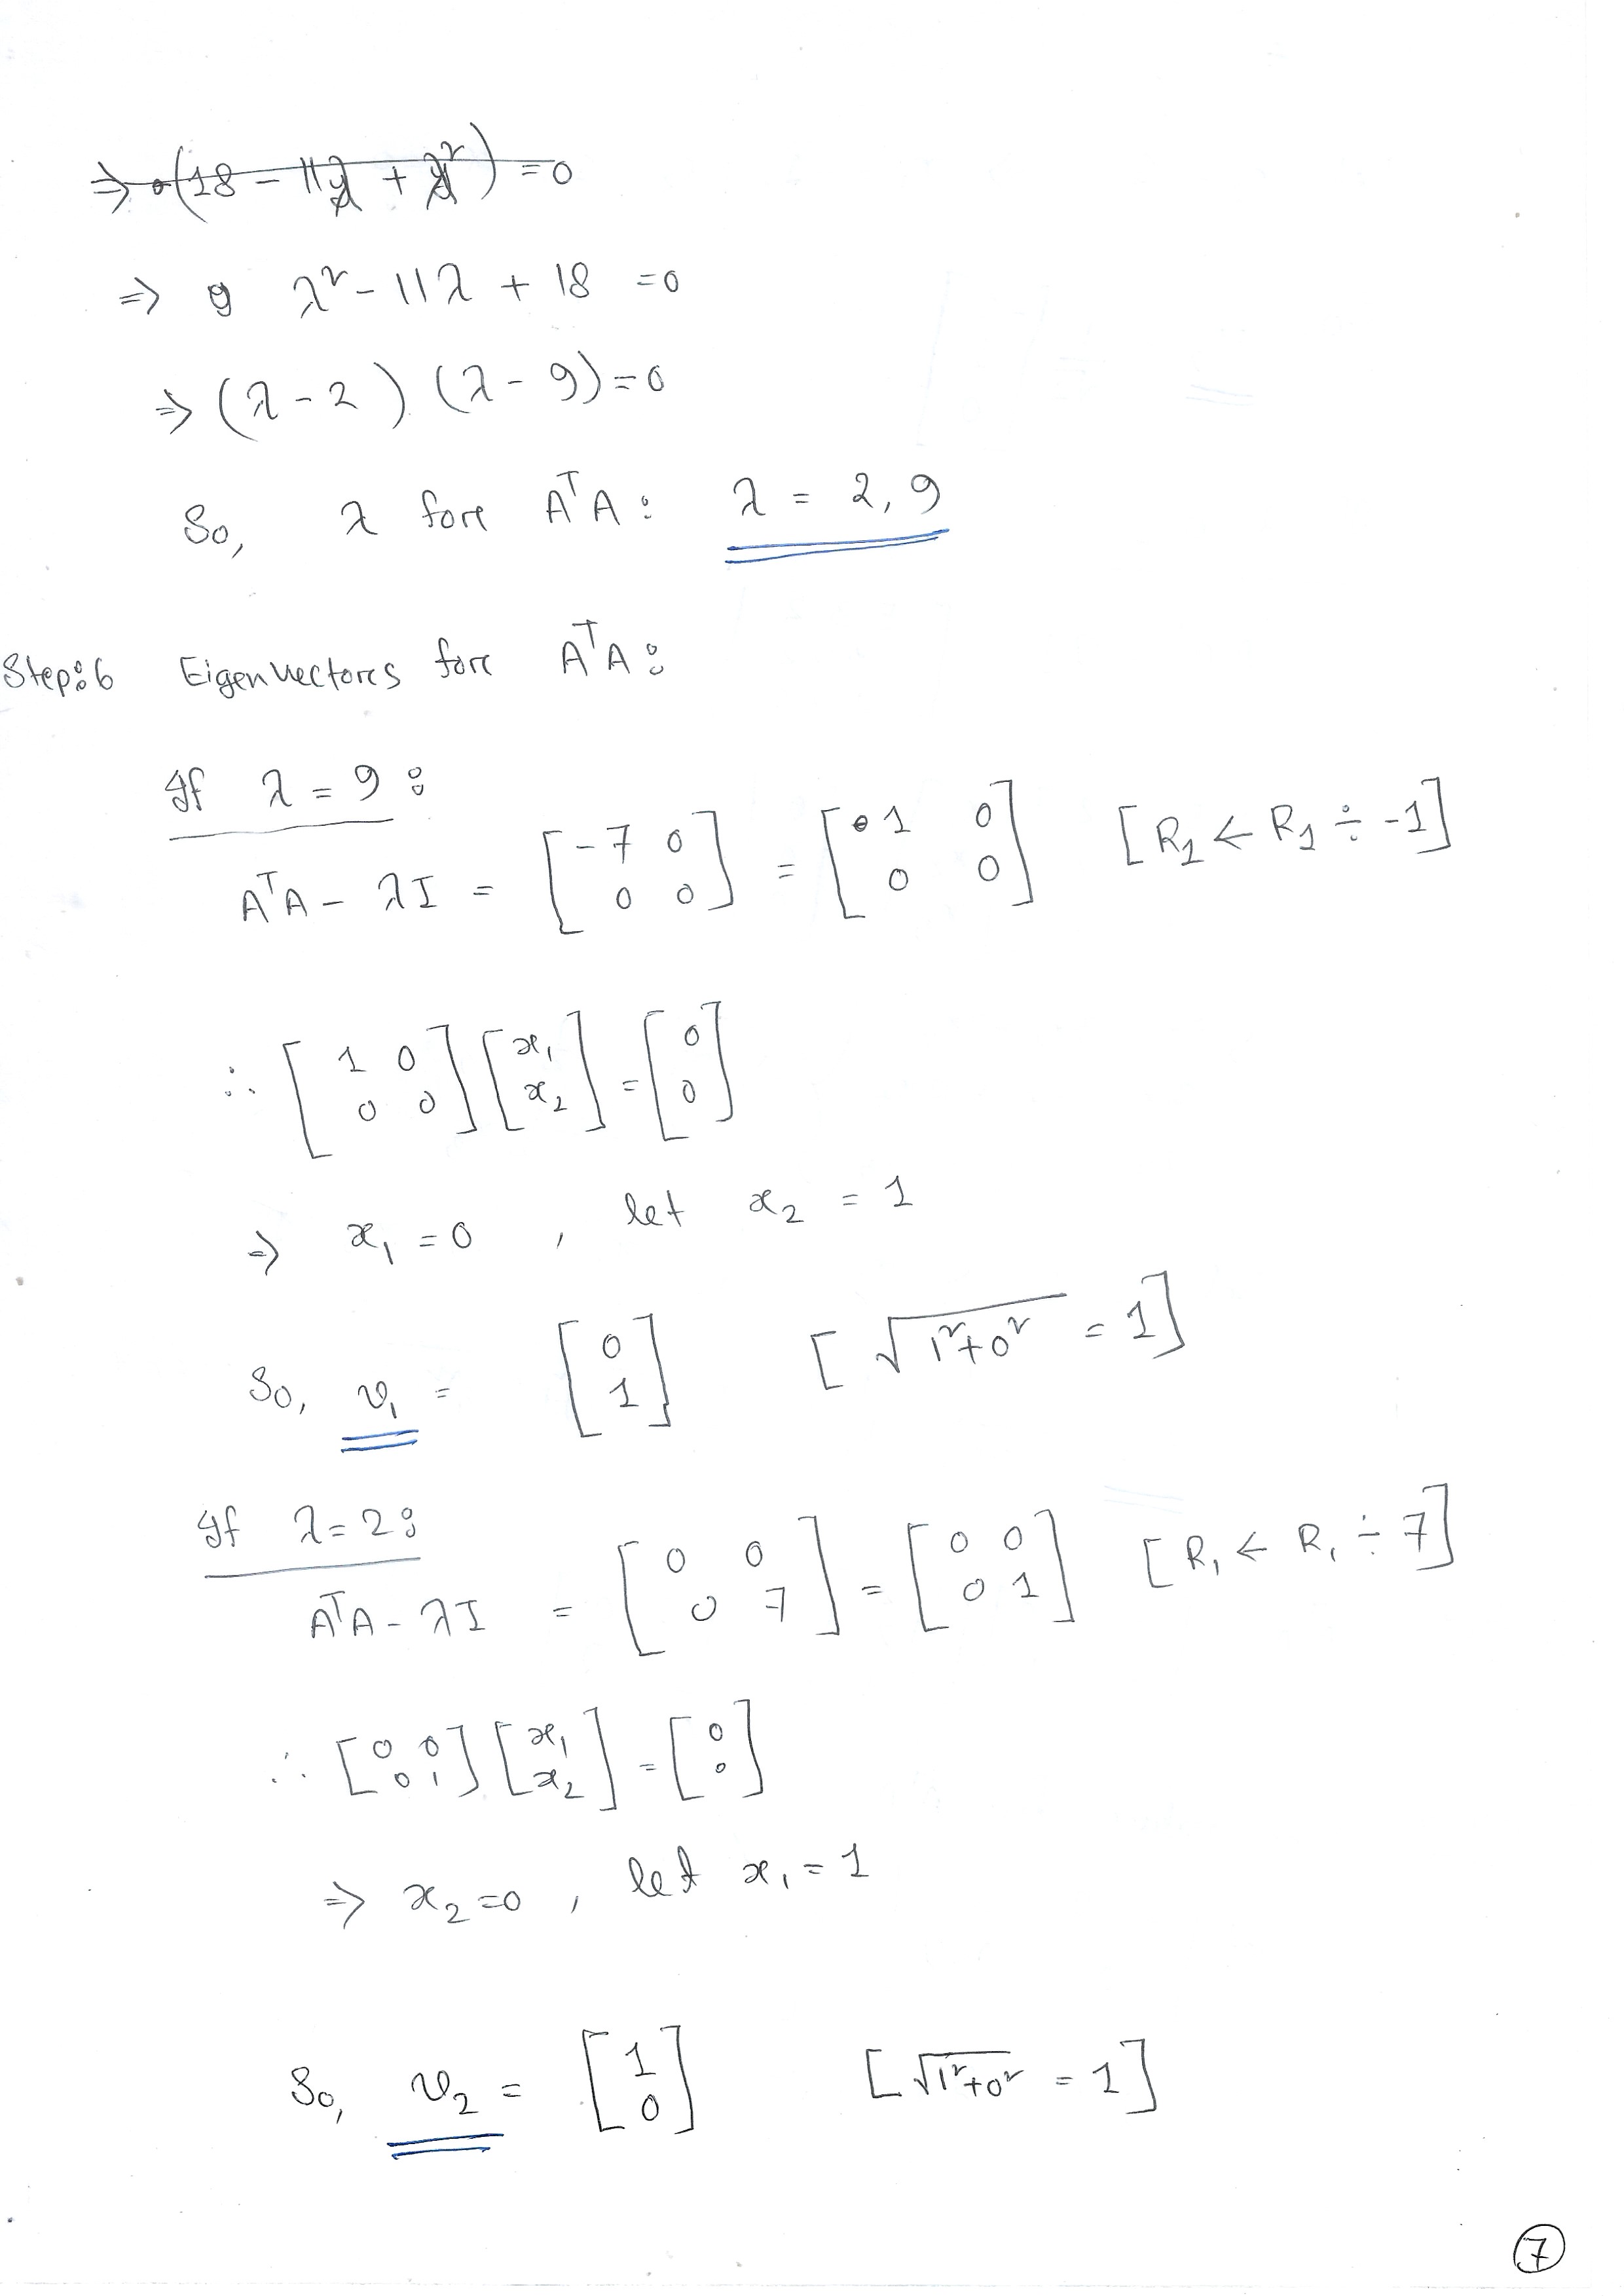 ⇒ (18 - 11λ + λ²) = 0
⇒ λ² - 11λ + 18 = 0
⇒ (λ - 2) (λ - 9) = 0
So, λ forе AᵀA: λ = 2, 9
Step:6 Eigenvectores fore AᵀA:
If λ = 9:
AᵀA - λI = [-7 0; 0 0] = [1 0; 0 0] [R₁ ← R₁ ÷ -1]
∴ [1 0; 0 0] [x₁; x₂] = [0; 0]
⇒ x₁ = 0, let x₂ = 1
So, v₁ = [0; 1] [√1²+0² = 1]
If λ = 2:
AᵀA - λI = [0 0; 0 7] = [0 0; 0 1] [R₁ ← R₁ ÷ 7]
∴ [0 0; 0 1] [x₁; x₂] = [0; 0]
⇒ x₂ = 0, let x₁ = 1
So, v₂ = [1; 0] [√1²+0² = 1]
7